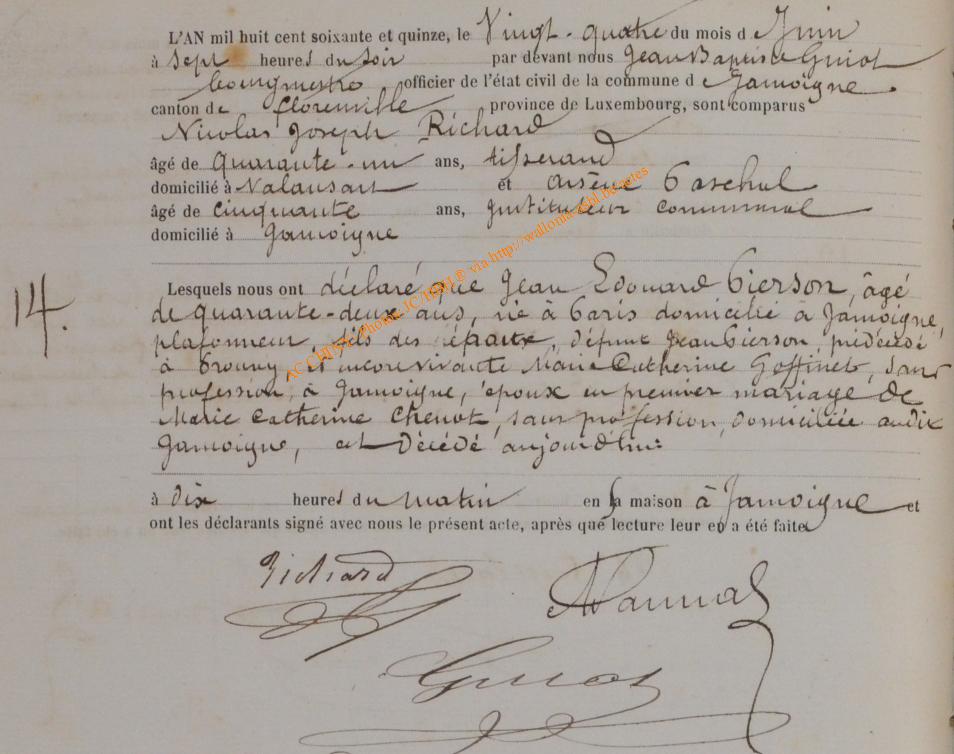 L'AN mil huit cent soixante et quinze, le Vingt-quatre du mois de Juin
à Sept heures du soir par devant nous Jean Baptiste Guiot
bourgmestre officier de l'état civil de la commune de Jamoigne.
canton de florenville province de Luxembourg, sont comparus
Nicolas Joseph Richard
âgé de quarante-un ans, tisserand
domicilié à Valansart et Arsène Paschal
âgé de cinquante ans, Instituteur communal
domicilié à Jamoigne
14.
Lesquels nous ont déclaré que Jean Edouard Pierson, âgé
de quarante-deux ans, né à Paris domicilié à Jamoigne,
plafonneur, fils des époux, défunt Jean Pierson, prédécédé
à Prouvy, et encore vivante Marie Catherine Goffinet, sans
profession, à Jamoigne, époux en premier mariage de
Marie Catherine Chenot, sans profession, domiciliée audit
Jamoigne, est décédé aujourd'hui
à dix heures du matin en sa maison à Jamoigne et
ont les déclarants signé avec nous le présent acte, après que lecture leur en a été faite
Richard
Guiot